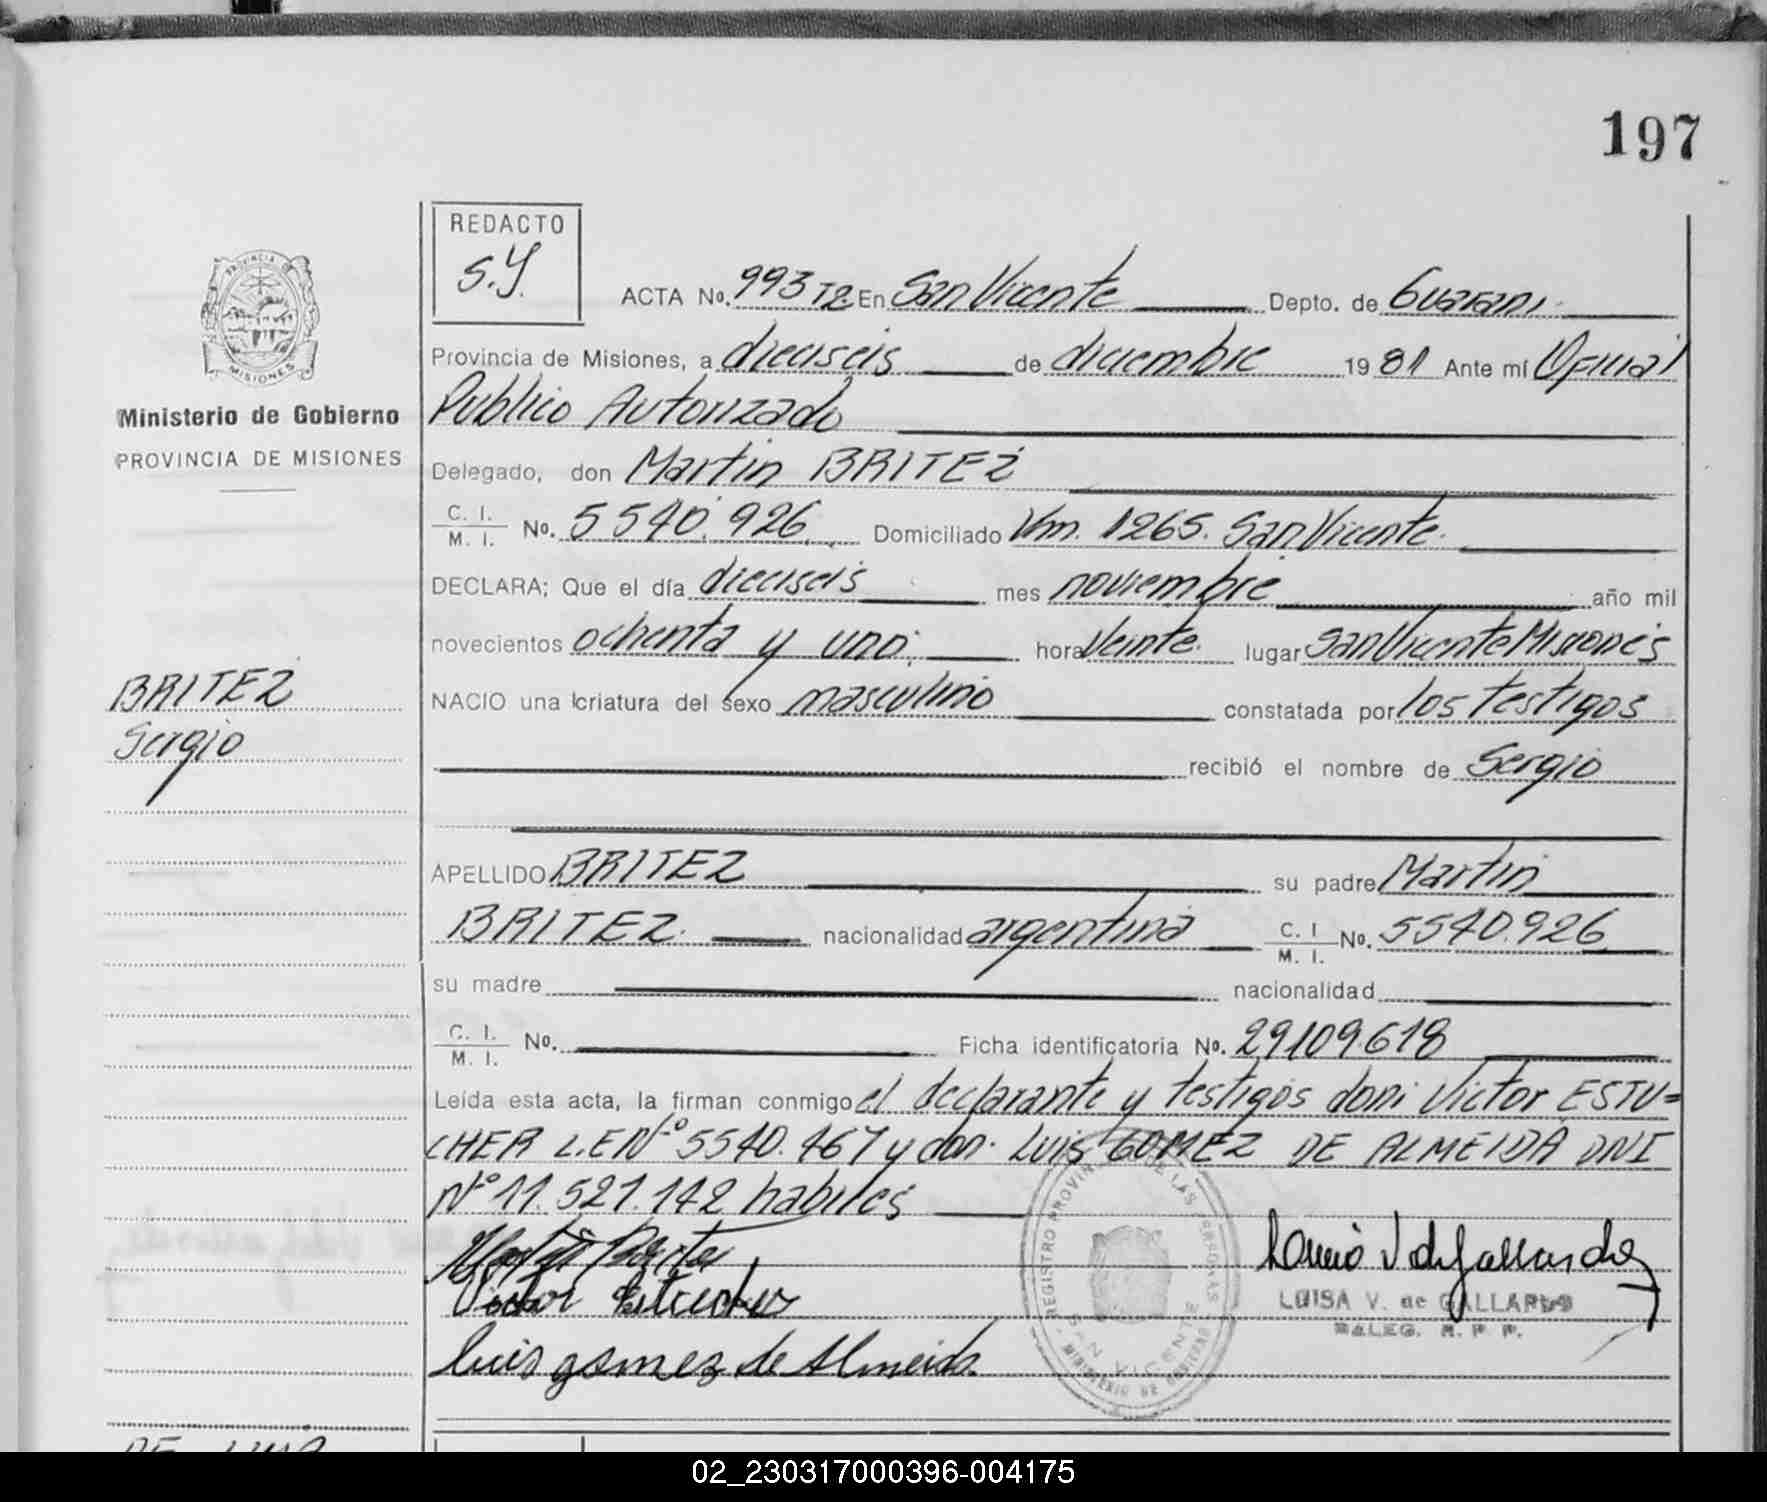 197
REDACTO
S.Y.
PROVINCIA DE
MISIONES
Ministerio de Gobierno
PROVINCIA DE MISIONES
ACTA No. 993 T2 En San Vicente Depto. de Guarani
Provincia de Misiones, a dieciseis de diciembre 1981 Ante mí Oficial
Publico Autorizado
Delegado, don Martin BRITEZ
C. I.
M. I. No. 5540.926 Domiciliado Km. 1265. San Vicente.
DECLARA; Que el día dieciseis mes noviembre año mil
novecientos ochenta y uno, hora Veinte lugar San Vicente Misiones
BRITEZ
Sergio
NACIO una criatura del sexo masculino constatada por los testigos
recibió el nombre de Sergio
APELLIDO BRITEZ su padre Martin
BRITEZ. nacionalidad argentina C. I. M. I. No. 5540.926
su madre nacionalidad
C. I.
M. I. No. Ficha identificatoria No. 29109.618
Leída esta acta, la firman conmigo el declarante y testigos don: Victor ESTU=
CHER L.E Nº 5540.467 y don. Luis GOMEZ DE ALMEIDA DNI
Nº 11.521.142 habiles
Victor
Luis gomez de Almeida
REGISTRO PROVINCIAL DE LAS PERSONAS
SAN VICENTE
MINISTERIO DE GOBIERNO
LUISA V. de GALLARDO
DELEG. R. P. P.
02_230317000396-004175